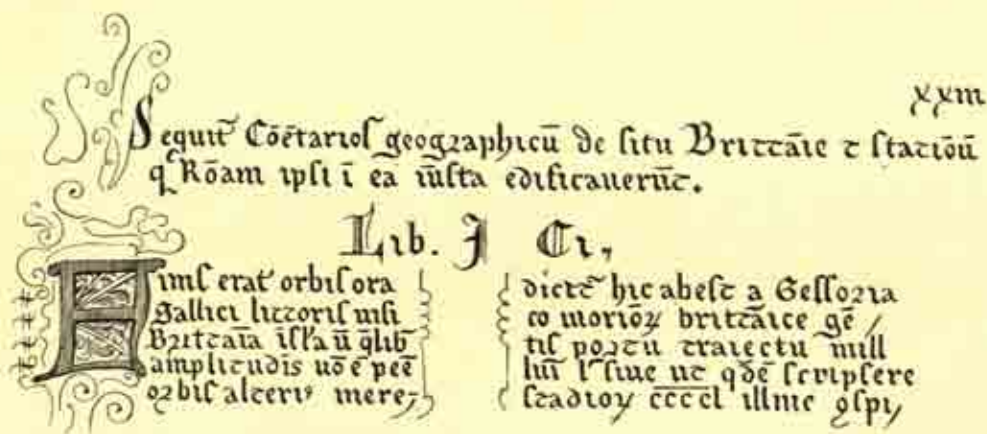 xxııı
Sequit̄ Cōētarioſ geographicū de ſitu Brittāie ⁊ ſtatiōū
q Rōam ipſi ī ea īuſta edificauerūt.
Lib. I Ci,
Finiſ erat orbiſ ora
Gallici littoriſ niſi
Brittaīa iſl̄a ū q̄lib̄
amplitudīs nōē peē
orbiſ alteriꝰ mere,
dicēt hic abeſt a Geſſoria
co morioꝝ brittāice gē,
tiſ portū traiectu mill
lūi l ſiue ut qdē ſcripſere
ſtadioꝝ c̄c̄c̄c̄l illinc ꝯſpi,